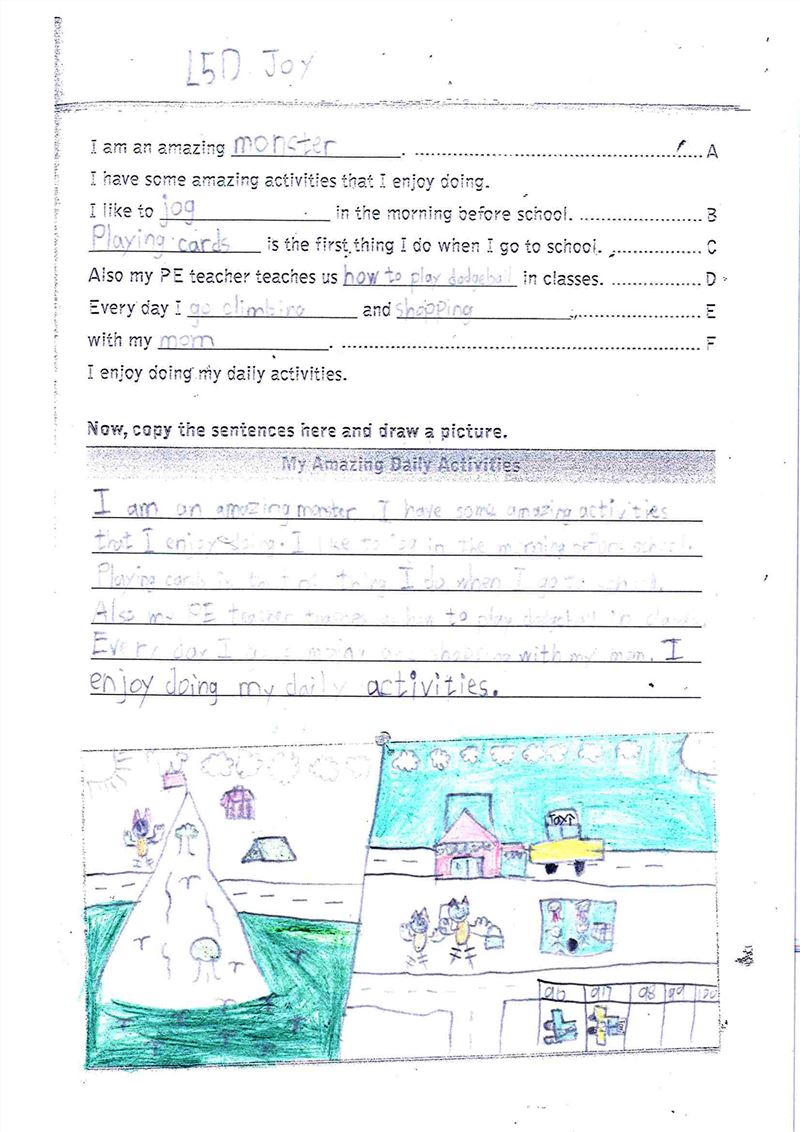 L5D Joy
I am an amazing monster. A
I have some amazing activities that I enjoy doing.
I like to jog in the morning before school. B
Playing cards is the first thing I do when I go to school. C
Also my PE teacher teaches us how to play dodgeball in classes. D
Every day I go climbing and shopping E
with my mom. F
I enjoy doing my daily activities.
Now, copy the sentences here and draw a picture.
My Amazing Daily Activities
I am an amazing monster. I have some amazing activities
that I enjoy doing. I like to jog in the morning before school.
Playing cards is the first thing I do when I go to school.
Also my PE teacher teaches us how to play dodgeball in
Every day I shopping with my mom. I
enjoy doing my daily activities.
TAXI
96 97 98 99